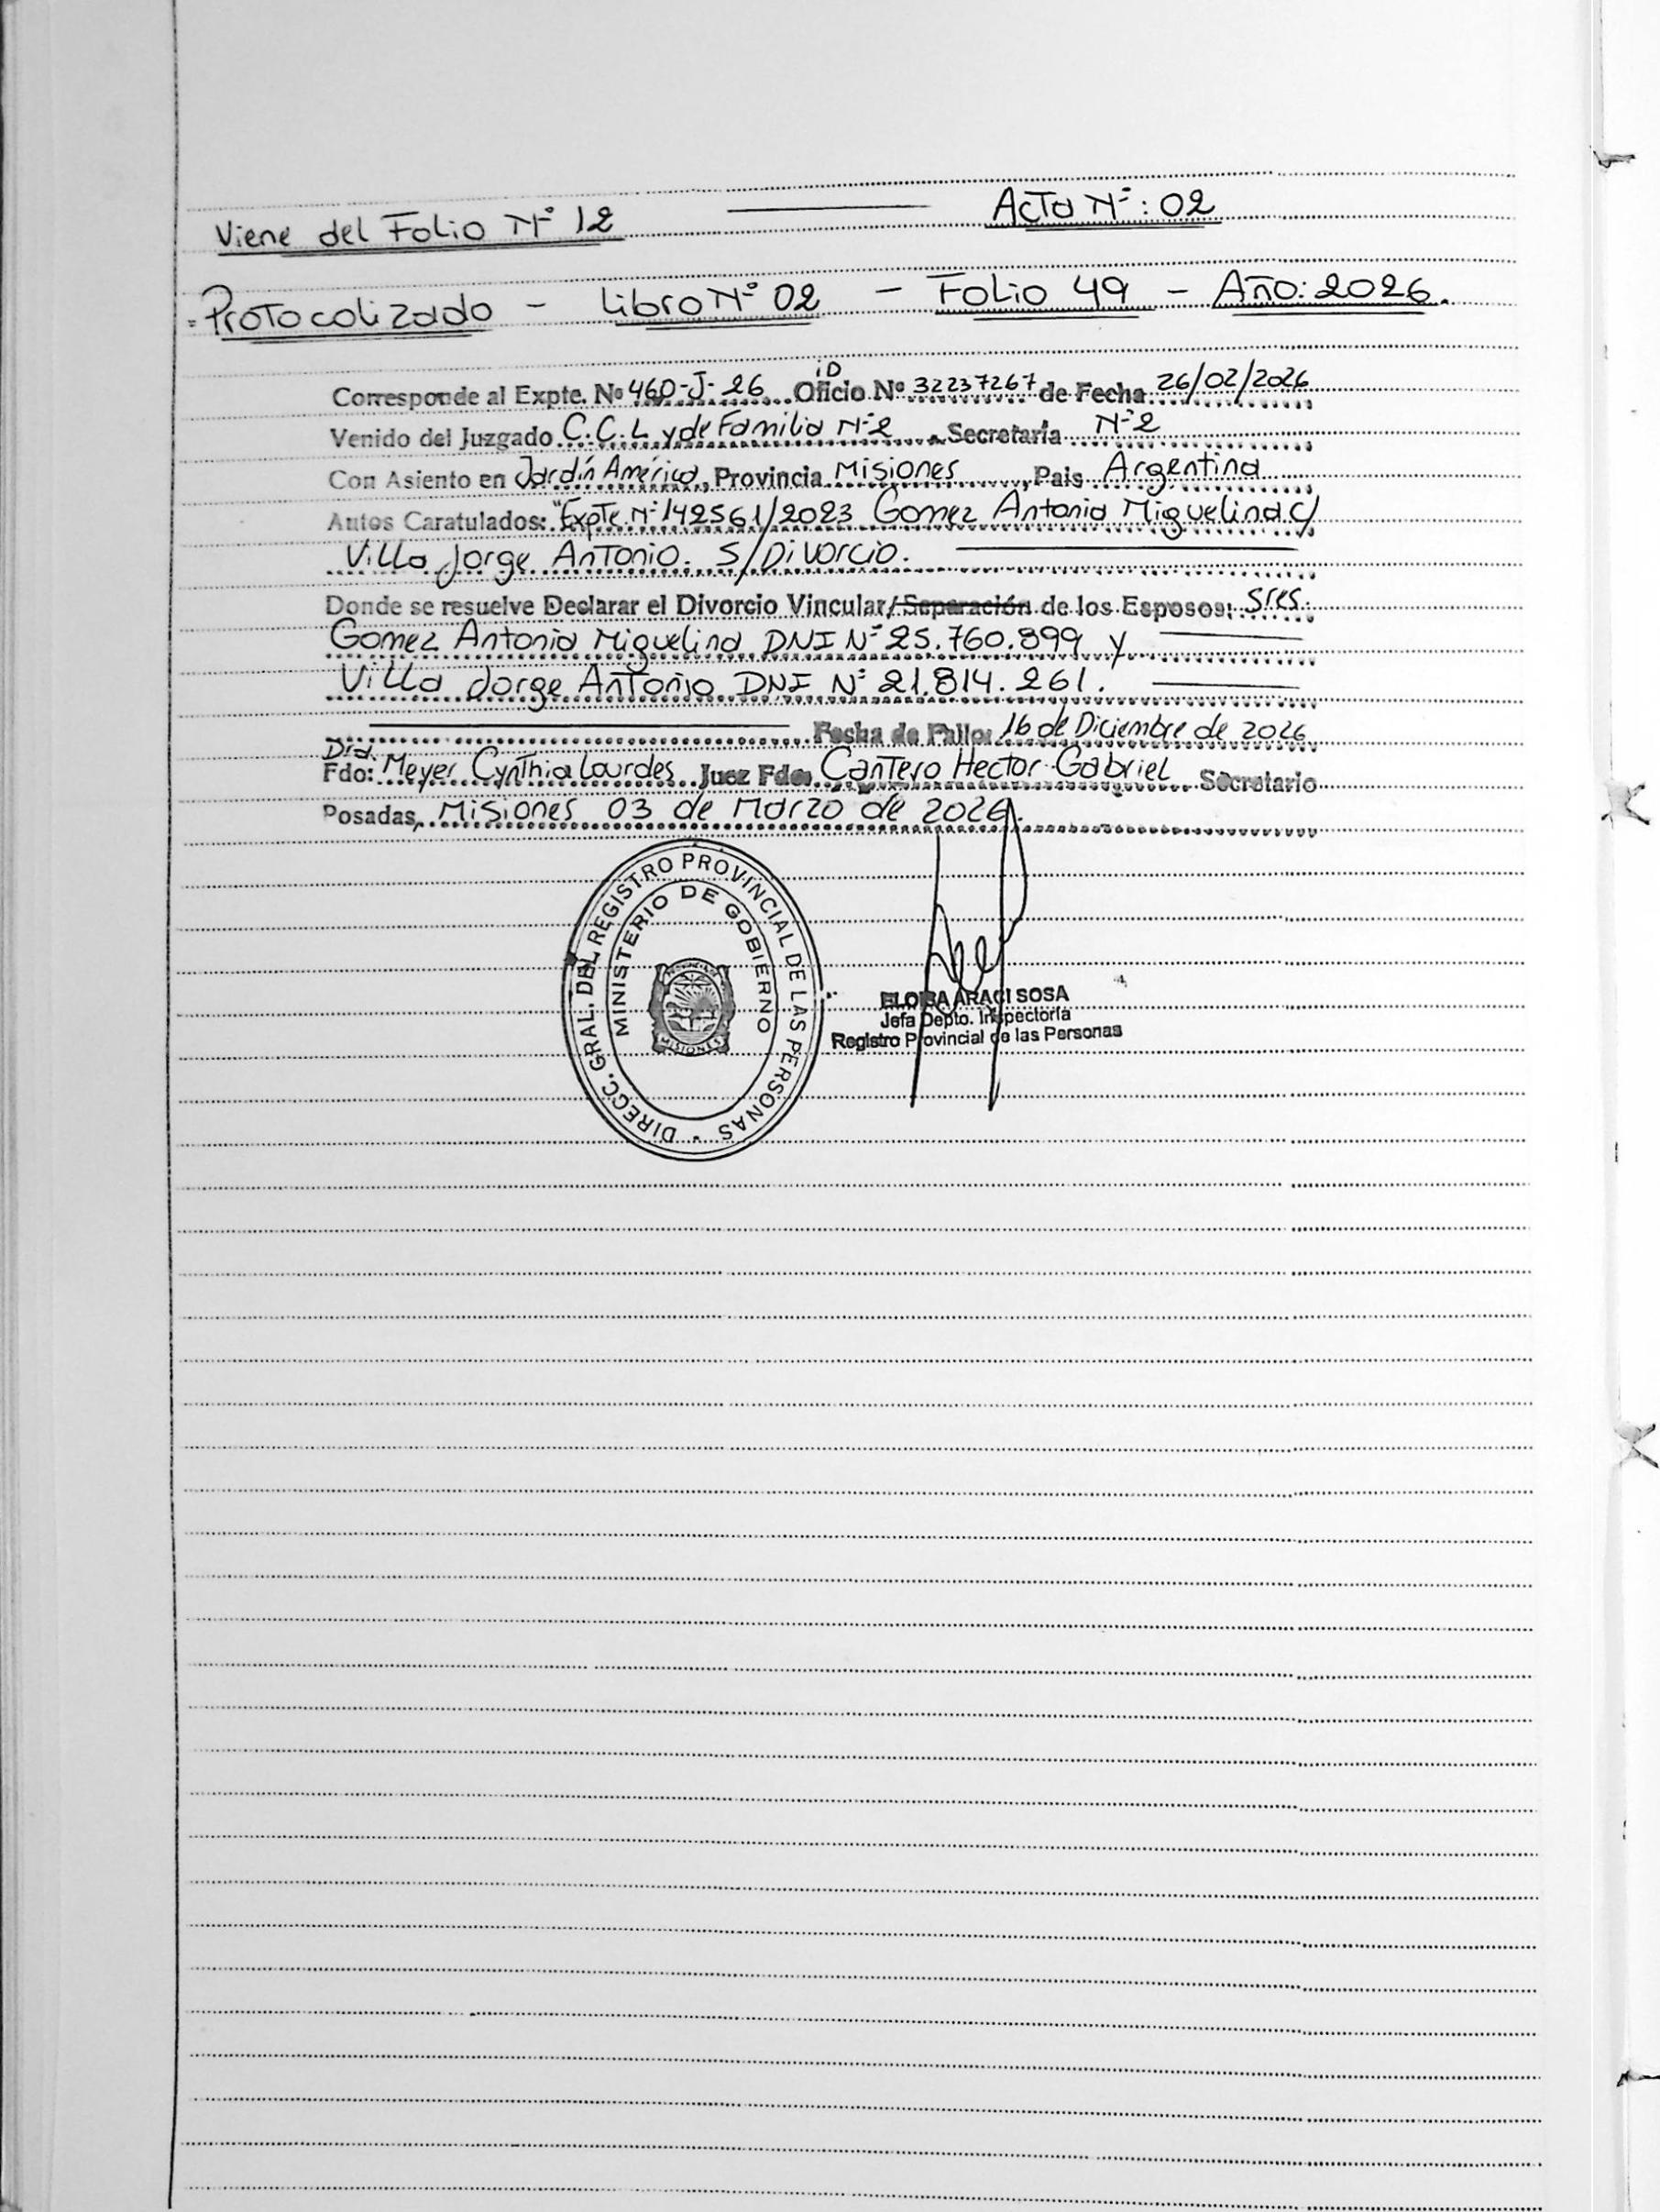 Viene del Folio Nº 12
Acta Nº: 02
Protocolizado - Libro Nº 02 - Folio 49 - Año: 2026.
iD
Corresponde al Expte. Nº 460-J-26 Oficio Nº 32237267 de Fecha 26/02/2026
Venido del Juzgado C.C.L y de Familia Nº2 Secretaría Nº2
Con Asiento en Jardín América, Provincia Misiones, Pais Argentina
Autos Caratulados: "Expte. Nº 142561/2023 Gomez Antonia Miguelina c/
Villa Jorge Antonio. S/Divorcio.
Donde se resuelve Declarar el Divorcio Vincular/Separación de los Esposos: Sres.
Gomez Antonia Miguelina DNI Nº 25.760.899 y
Villa Jorge Antonio DNI Nº 21.814.261.
Fecha de Fallo: 16 de Diciembre de 2026
Dra.
Fdo: Meyer Cynthia Lourdes Juez Fdo: Cantero Hector Gabriel Secretario
Posadas, Misiones 03 de Marzo de 2026.
DIRECC. GRAL. DEL REGISTRO PROVINCIAL DE LAS PERSONAS
MINISTERIO DE GOBIERNO
MISIONES
ELOISA ARACI SOSA
Jefa Depto. Inspectoría
Registro Provincial de las Personas